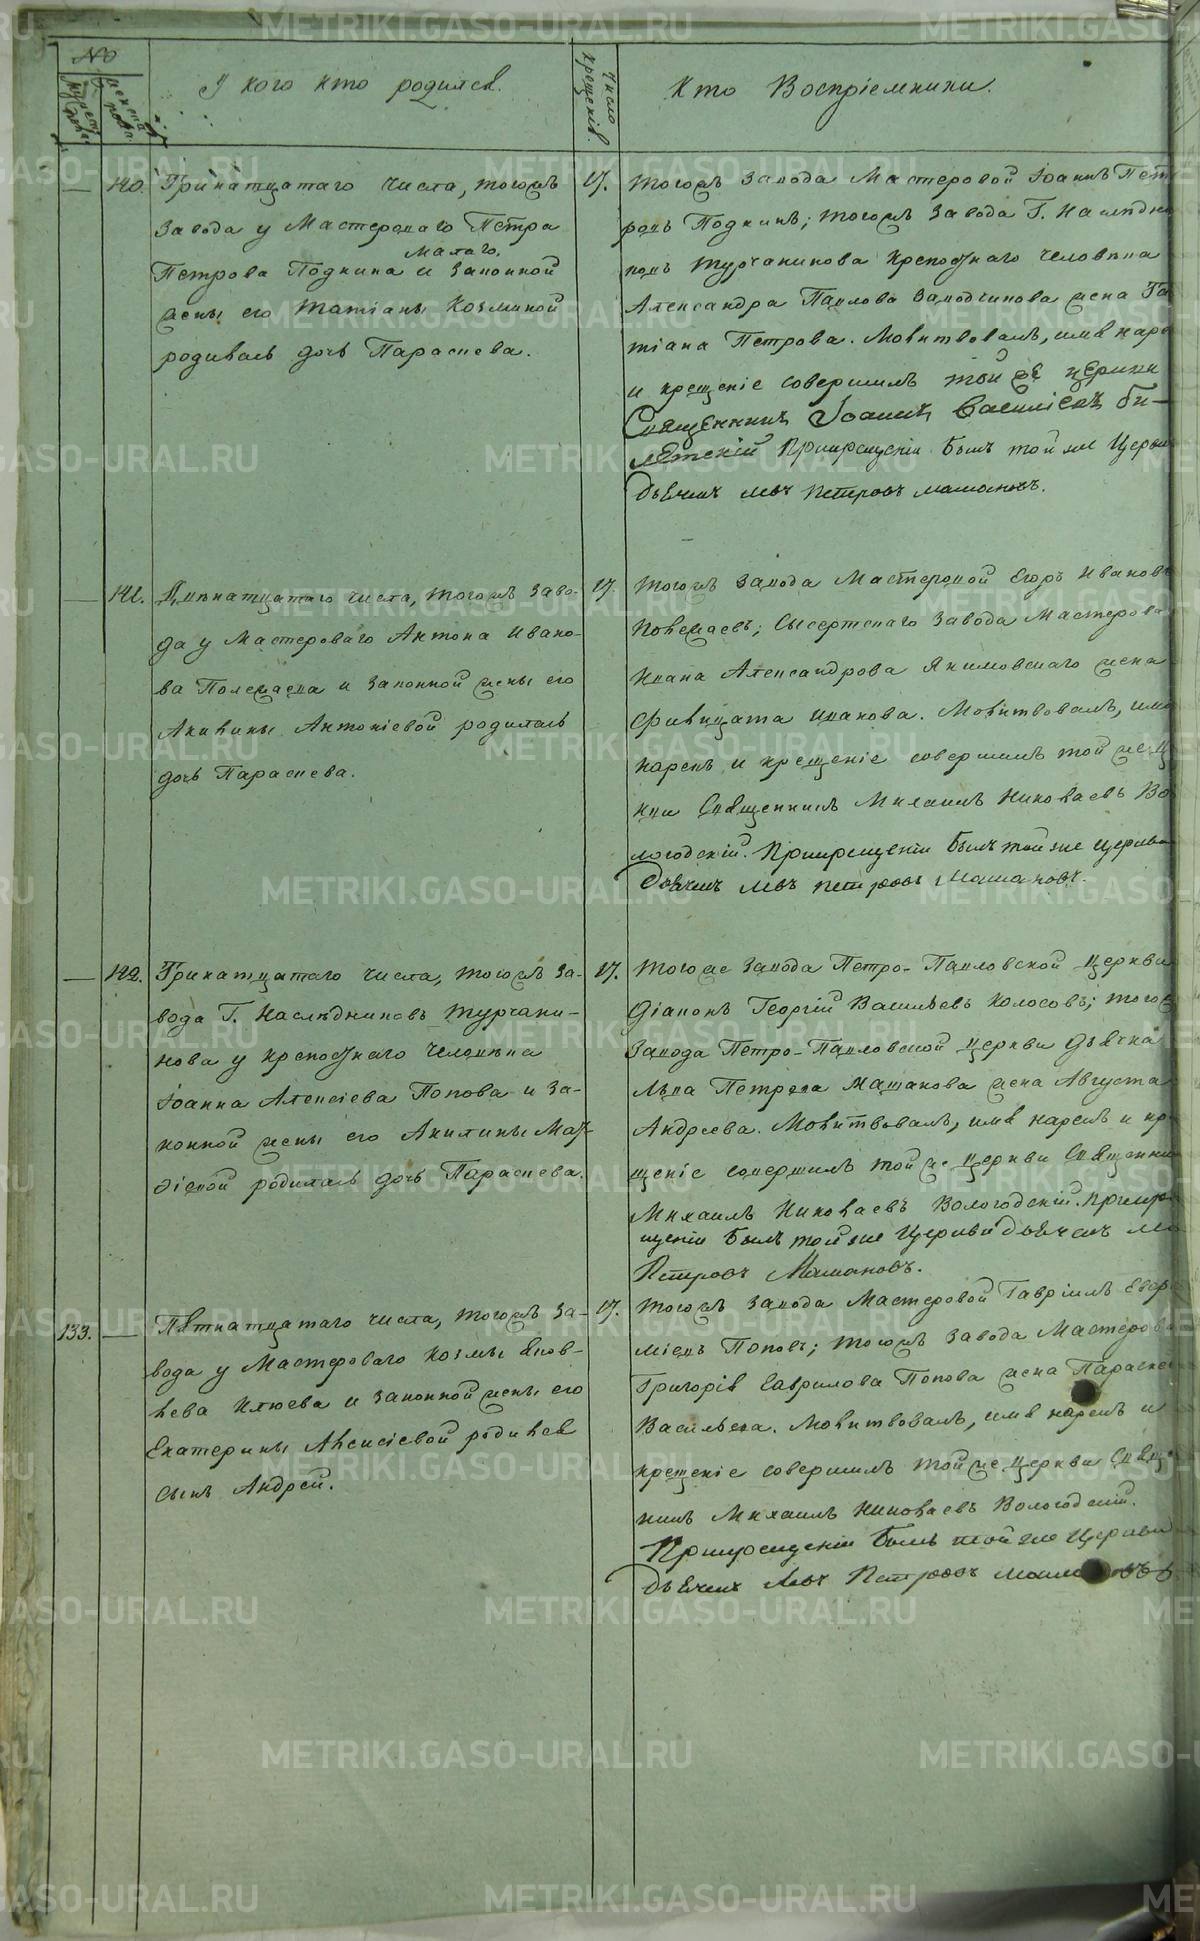 №
мужеска пола.
женска пола.
У кого кто родился.
Число крещенія.
Кто Воспріемники.
— 140. Тринатцатаго числа, тогожъ
завода у Мастероваго Петра
Малаго.
Петрова Подкина и законной
жены его Татіаны Козминой
родилась дочь Параскева.
17. Тогожъ завода Мастеровой Іоаннъ Пет
ровъ Подкинъ; тогожъ завода Г. Наслѣдни
ковъ Турчанинова крепостнаго человѣка
Александра Павлова Заводчикова жена Та
тіана Петрова. Молитвовалъ, имя наре
и крещеніе совершилъ той же церкви
Священникъ Іоаннъ Василіевъ Би-
летскій Прикрещеніи былъ той же Церкви
дьячекъ Левъ Петровъ Мамановъ.
— 141. Двѣнатцатаго числа, тогожъ заво-
да у Мастероваго Антона Ивано-
ва Полежаева и законной жены его
Акилины Антоніевой родилась
дочь Параскева.
17. Тогожъ завода Мастеровой Егоръ Ивановъ
Полежаевъ; Сысертскаго завода Мастерова
Ивана Александрова Якимовскаго жена
Филицата Иванова. Молитвовалъ, имя
нарекъ и крещеніе совершилъ той же ц
кви Священникъ Михаилъ Николаевъ Во
логодскій. Прикрещеніи былъ той же церкви
Дьячекъ Левъ Петровъ Мамановъ.
— 142. Тринатцатаго числа, тогожъ за-
вода Г. Наслѣдниковъ Турчани-
нова у крепостнаго человѣка
Іоанна Алексіева Попова и за-
конной жены его Акилины
родилась дочь Параскева.
17. Тогоже завода Петро-Павловской церкви
Діаконъ Георгій Васильевъ Колосовъ; тогож
завода Петро-Павловской церкви дьячка
Льва Петрова Маманова жена Августа
Андреева. Молитвовалъ, имя нарекъ и кре
щеніе совершилъ той же церкви Священни
Михаилъ Николаевъ Вологодскій. Прикре
щеніи былъ той же Церкви дьячекъ Ле
Петровъ Мамановъ.
133. — Пятнатцатаго числа, тогожъ за-
вода у Мастероваго Козмы Яков-
лева Клюева и законной жены его
Екатерины Алексіевой родился
сынъ Андрей.
17. Тогожъ завода Мастеровой Гавріилъ Евфи
міевъ Поповъ; тогожъ завода Мастерова
Григорія Гаврилова Попова жена Параскева
Васильева. Молитвовалъ, имя нарекъ и
крещеніе совершилъ той же церкви Священ
никъ Михаилъ Николаевъ Вологодскій.
Прикрещеніи былъ той же Церкви
дьячекъ Левъ Петровъ
METRIKI.GASO-URAL.RU